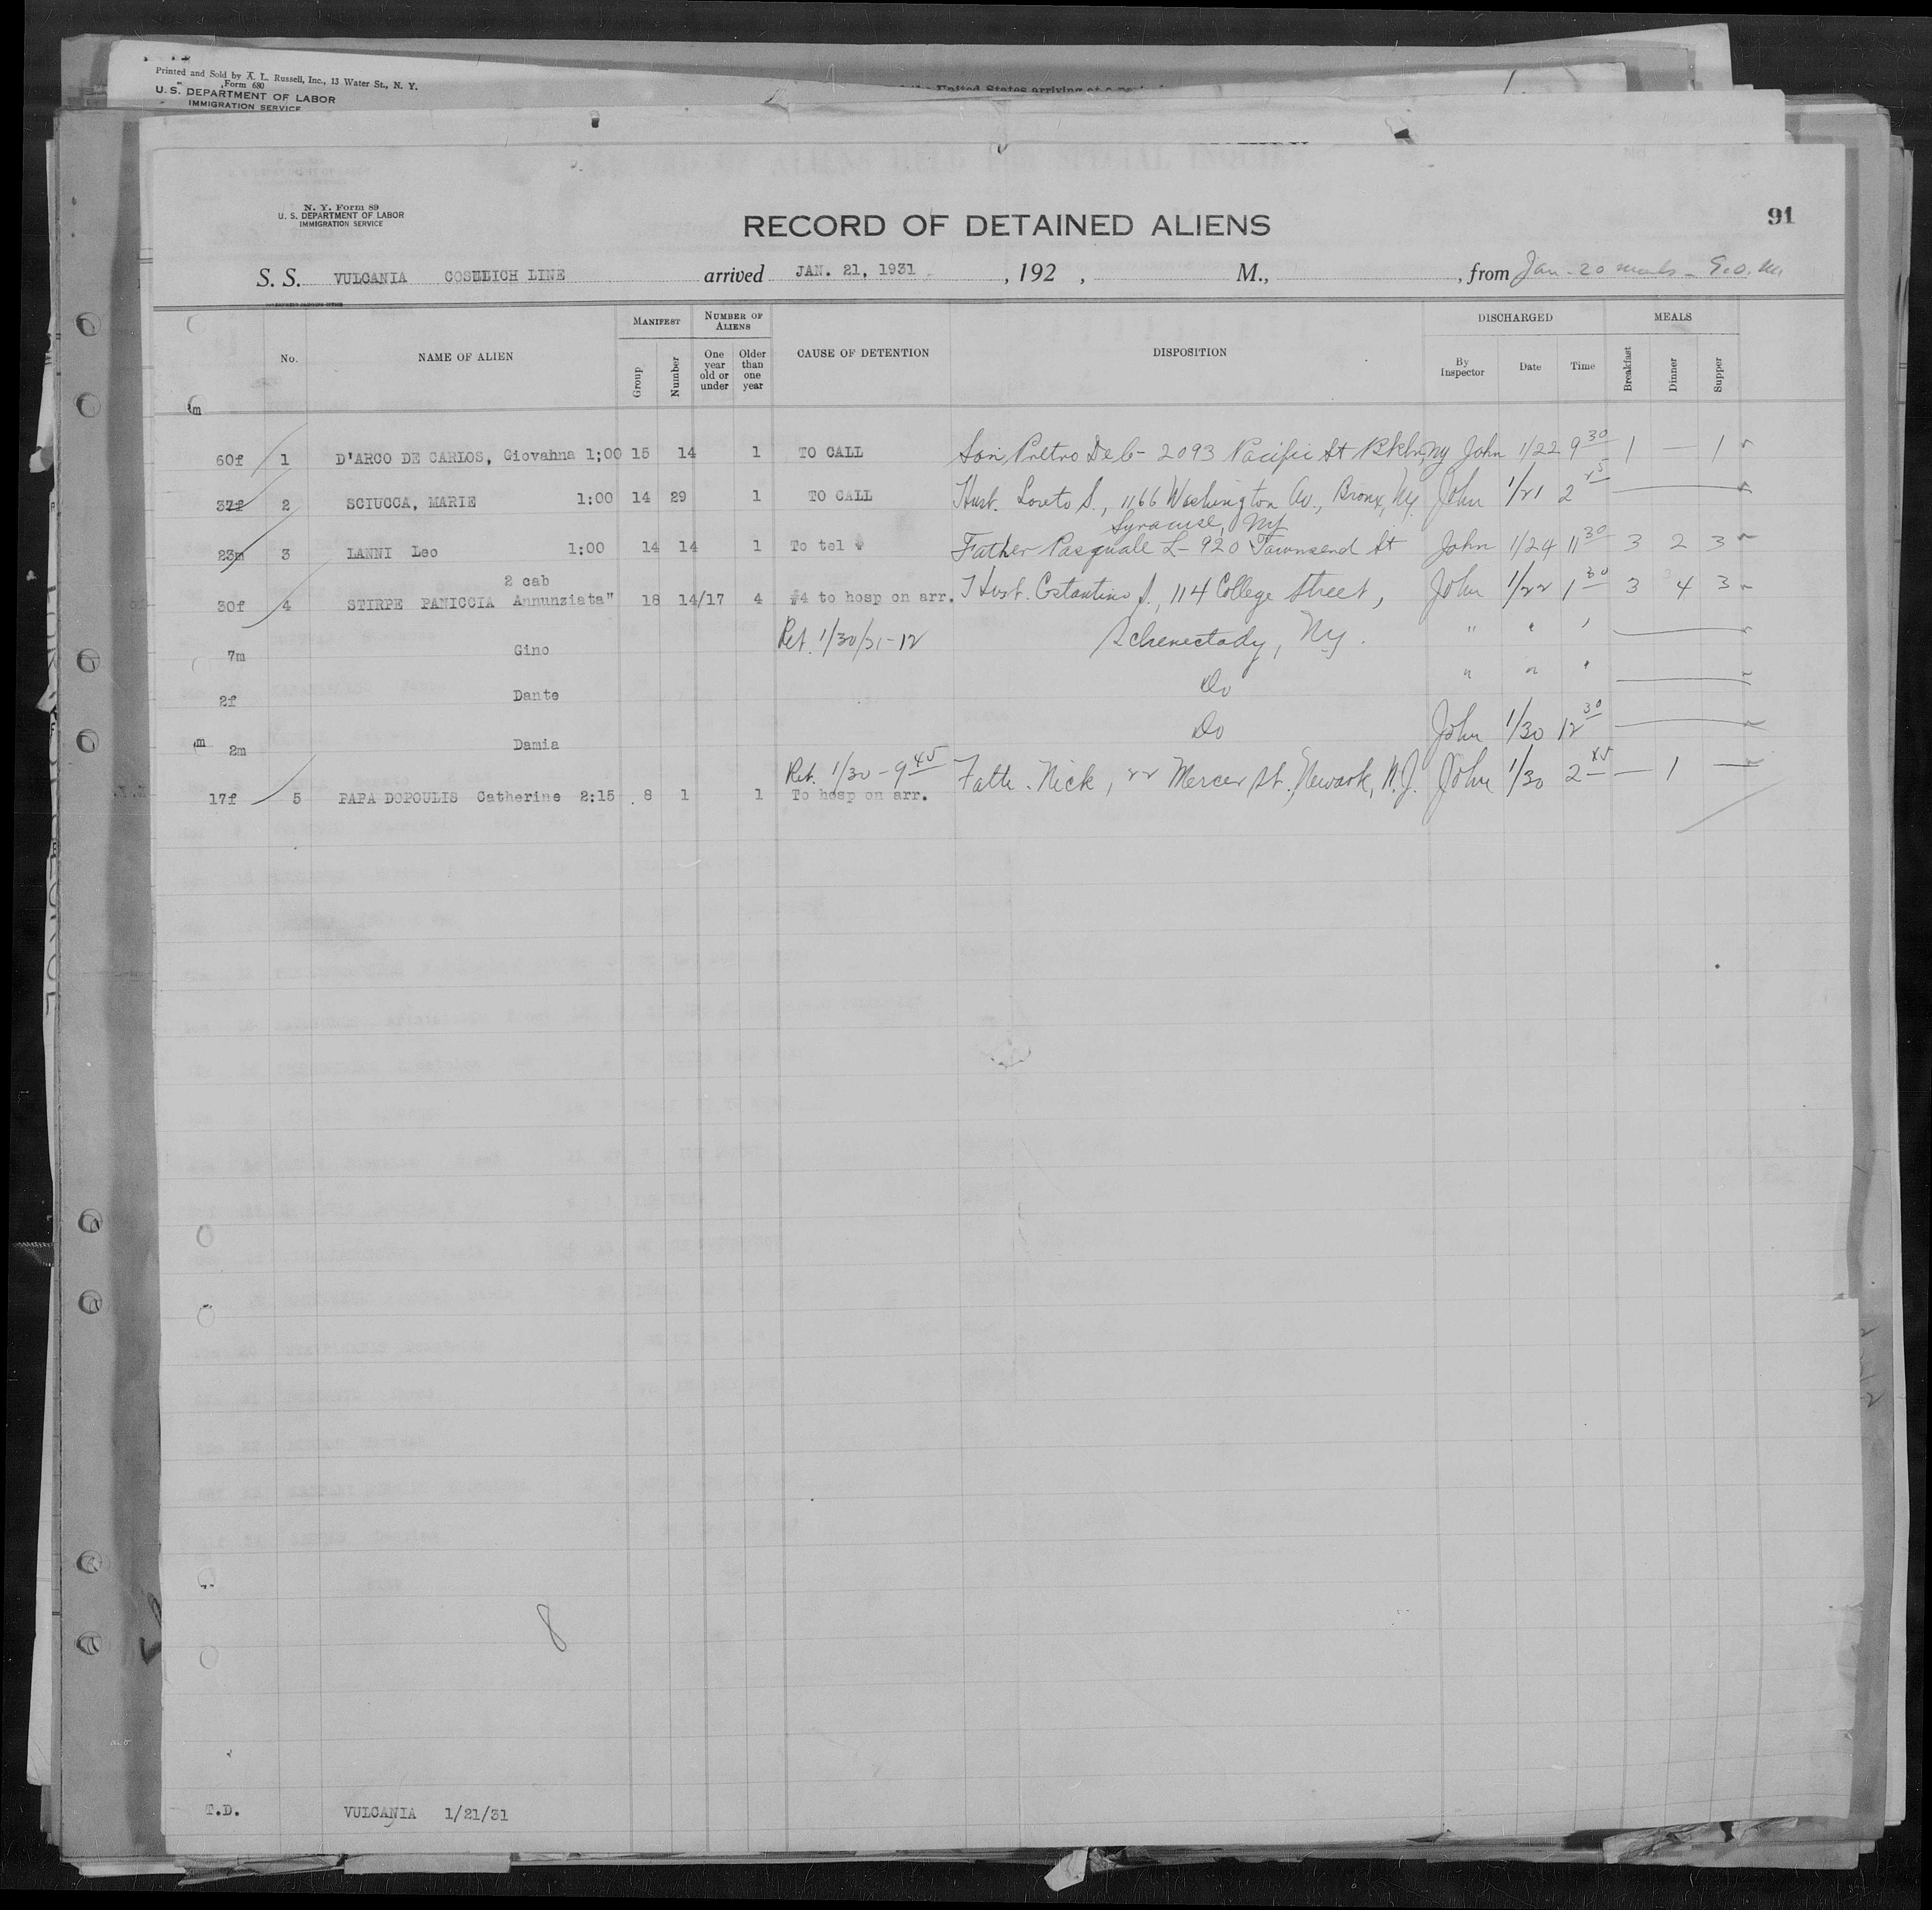 Printed and Sold by A. L. Russell, Inc., 13 Water St., N. Y.
Form 680
U. S. DEPARTMENT OF LABOR
IMMIGRATION SERVICE
N. Y. Form 89
U. S. DEPARTMENT OF LABOR
IMMIGRATION SERVICE
RECORD OF DETAINED ALIENS
91
S. S. VULCANIA COSULICH LINE arrived JAN. 21, 1931, 192 , M., , from Jan - 20 meals -
No. NAME OF ALIEN MANIFEST Group Number NUMBER OF ALIENS One year old or under Older than one year CAUSE OF DETENTION DISPOSITION DISCHARGED By Inspector Date Time MEALS Breakfast Dinner Supper
60f 1 D'ARCO DE CARLOS, Giovahna 1;00 15 14 1 TO CALL Son Pietro De C- 2093 Pacific St Bkln, Ny John 1/22 9 30 1 — 1
37f 2 SCIUCCA, MARIE 1:00 14 29 1 TO CALL Husb. Loreto S., 1166 Washington Av., Bronx, Ny. John 1/21 2
Syracuse, Ny
23m 3 IANNI Leo 1:00 14 14 1 To tel Father Pasquale L- 920 Townsend St John 1/24 11 30 3 2 3
2 cab
30f 4 STIRPE PANICCIA Annunziata" 18 14/17 4 #4 to hosp on arr. Husb. Costantino S., 114 College Street, John 1/22 1 30 3 4 3
7m Gino Ret. 1/30/31-12 Schenectady, Ny. " " "
2f Dante Do " " "
m 2m Damia Do John 1/30 12 30
Ret. 1/30 - 9 45
17f 5 PAPA DOPOULIS Catherine 2:15 8 1 1 To hosp on arr. Fath. Nick, 22 Mercer St., Newark, N.J. John 1/30 2 — 1 —
8
T.D. VULCANIA 1/21/31